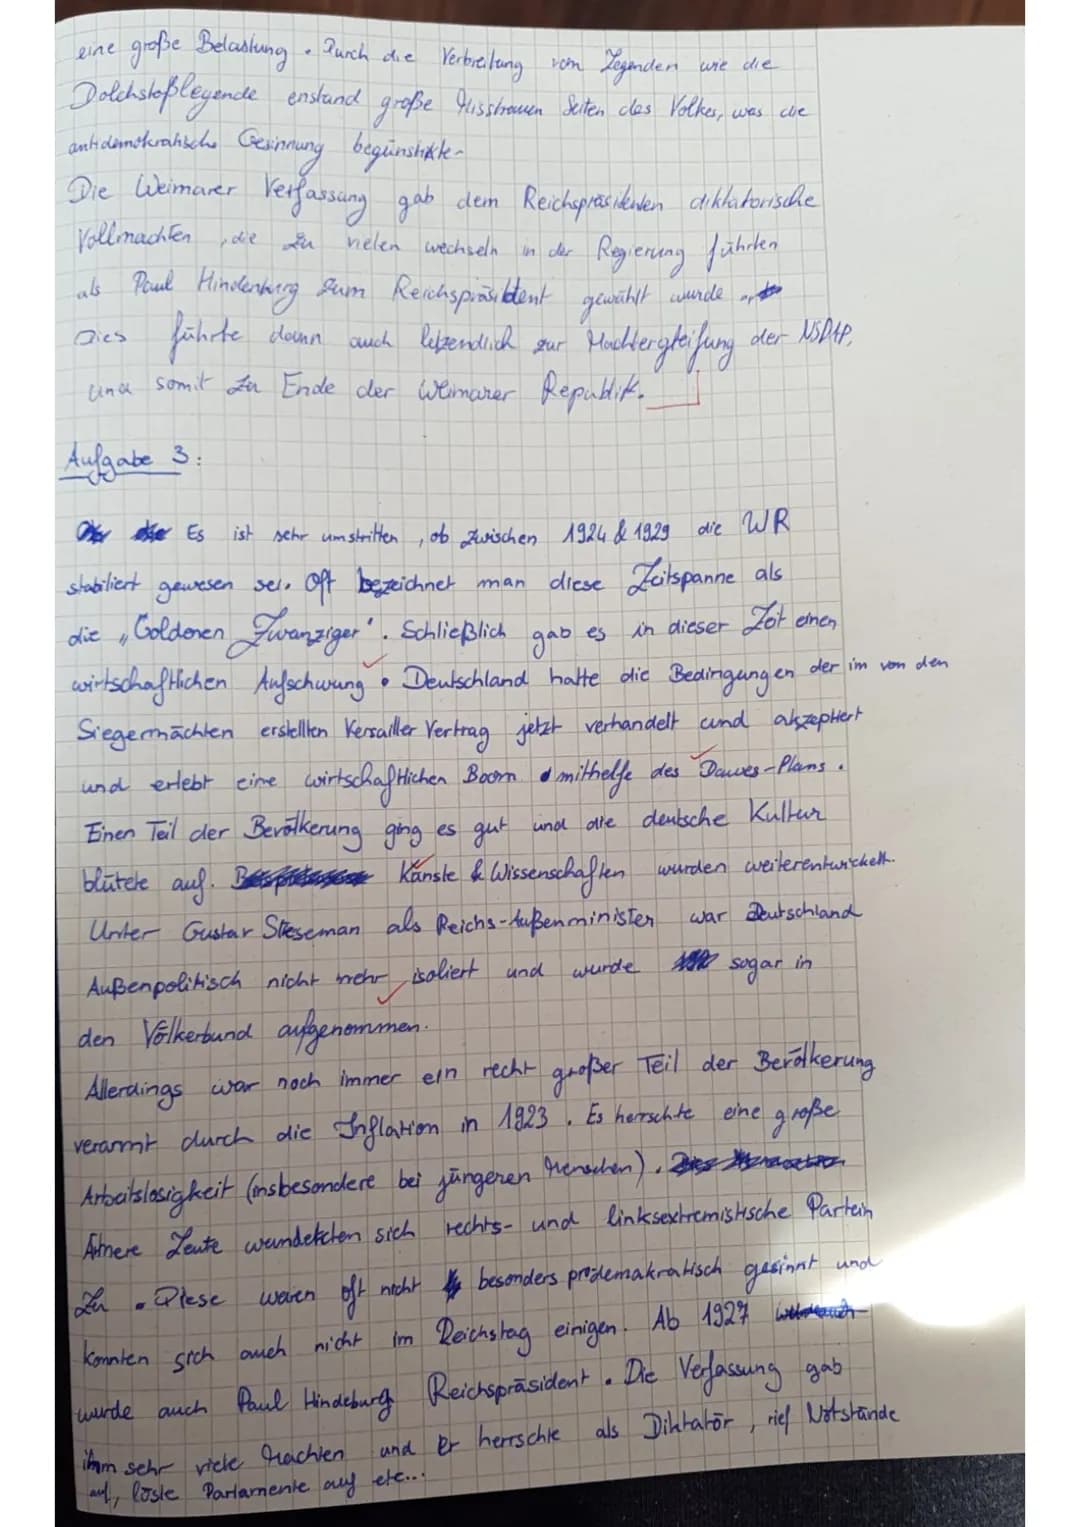 eine große Belastung. Durch die Verbreitung von Legenden wie die
Dolchstoßlegende enstand große Misstrauen Seiten des Volkes, was die
antidemokratische Gesinnung begünstikte.
Die Weimarer Verfassung gab dem Reichspräsidenten diktatorische
Vollmachten, die zu vielen wechseln in der Regierung führten
als Paul Hindenburg zum Reichspräsident gewählt wurde.
Dies führte dann auch letzendlich zur Machtergreifung der NSDAP,
und somit zu Ende der Weimarer Republik.
Aufgabe 3:
Es ist sehr umstritten, ob zwischen 1924 & 1929 die WR
stabiliert gewesen sei. Oft bezeichnet man diese Zeitspanne als
die „Goldenen Zwanziger". Schließlich gab es in dieser Zeit einen
wirtschaftlichen Aufschwung. Deutschland hatte die Bedingungen der im von den
Siegermächten erstellten Versailler Vertrag jetzt verhandelt und akzeptiert
und erlebt eine wirtschaftlichen Boom mithelfe des Dawes-Plans.
Einen Teil der Bevölkerung ging es gut und die deutsche Kultur
blütete auf. Künste & Wissenschaften wurden weiterentwickelt.
Unter Gustav Streseman als Reichs-Außenminister war Deutschland
Außenpolitisch nicht mehr isoliert und wurde sogar in
den Völkerbund aufgenommen.
Allerdings war noch immer ein recht großer Teil der Bevölkerung
verarmt durch die Inflation in 1923. Es herrschte eine große
Arbeitslosigkeit (insbesondere bei jüngeren Menschen).
Ärmere Leute wandekten sich rechts- und linksextremistische Partein
zu. Diese waren oft nicht besonders prodemakratisch gesinnt und
konnten sich auch nicht im Reichstag einigen. Ab 1927
wurde auch Paul Hindeburg Reichspräsident. Die Verfassung gab
ihm sehr viele Machten und Er herrschte als Diktatör, rief Notstände
auf, löste Parlamente auf etc...